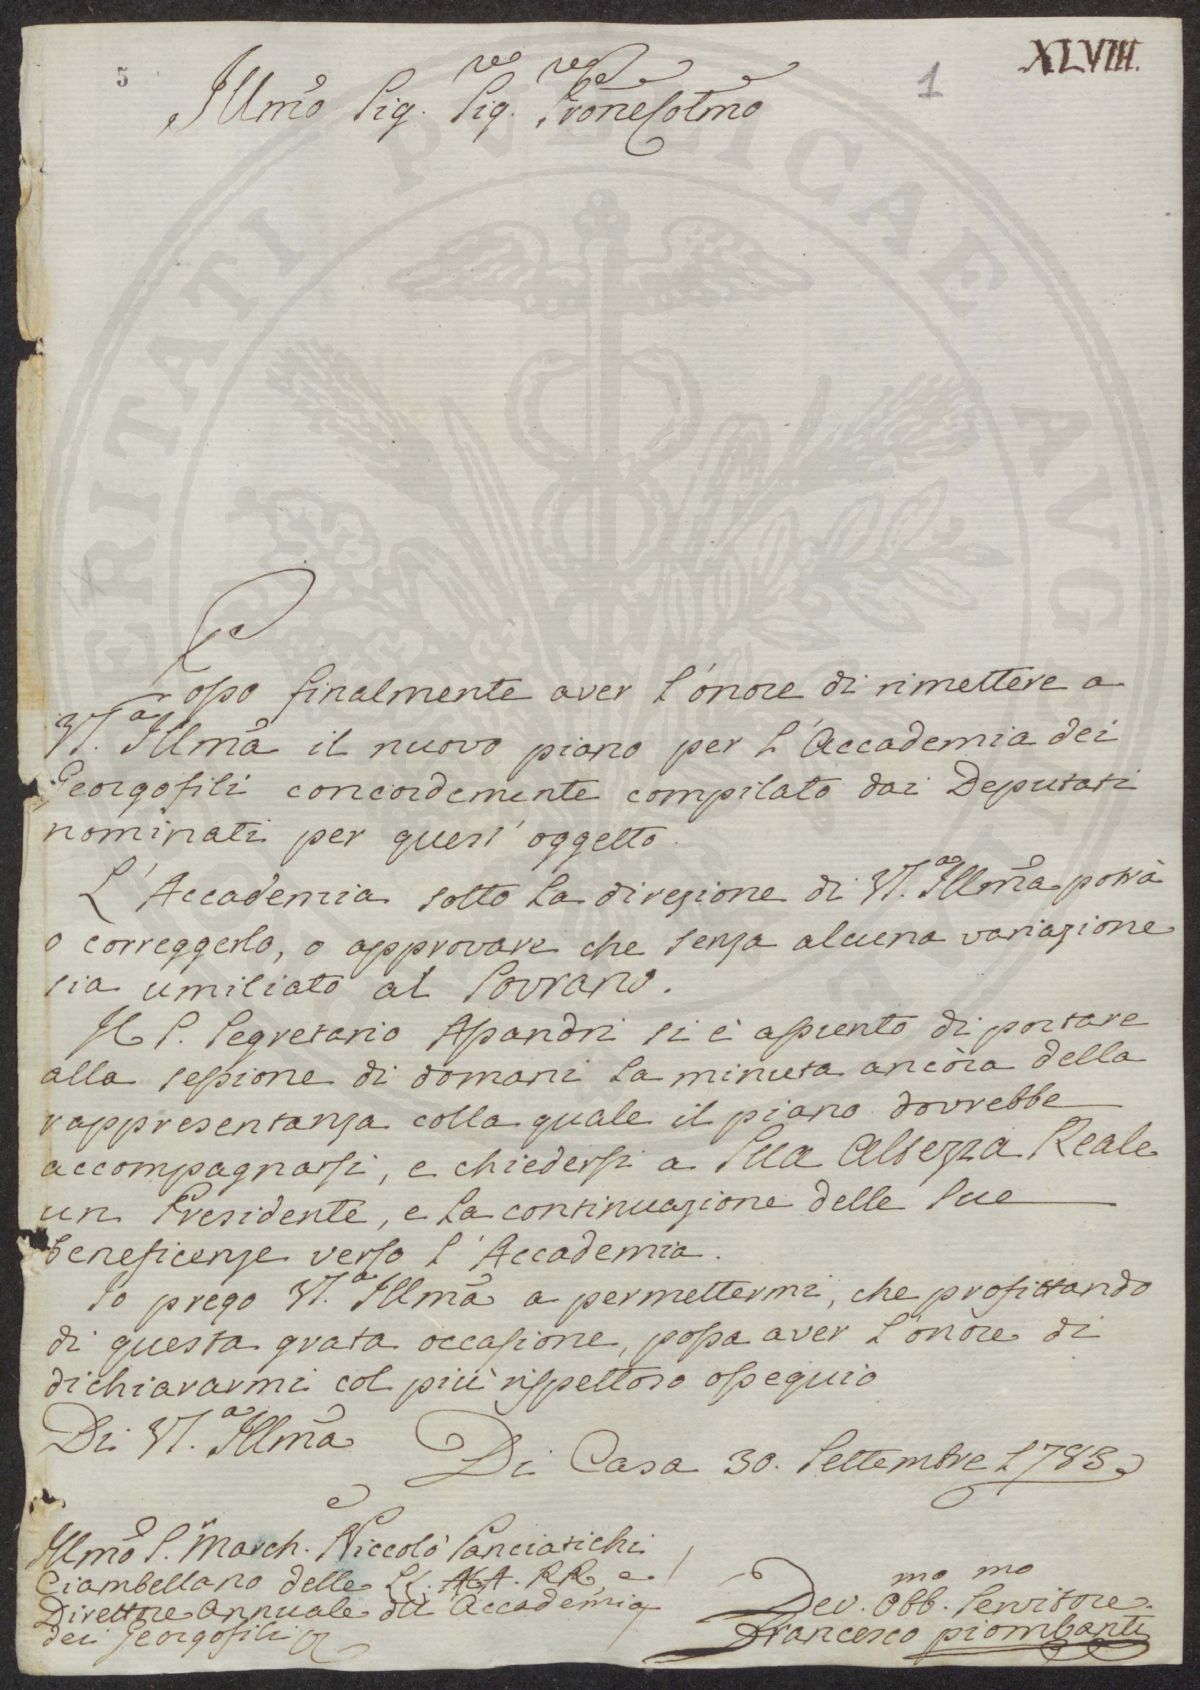 5
1
XLVIII.
Illmo Sig. Sig. Prone Colmo
Posso finalmente aver l'onore di rimettere a
VS. Illma il nuovo piano per l'Accademia dei
Georgofili concordemente compilato dai Deputati
nominati per quest'oggetto.
L'Accademia sotto la direzione di VS. Illma potrà
o correggerlo, o approvare che senza alcuna variazione
sia umiliato al Sovrano.
Il S. Segretario si è assunto di portare
alla sessione di domani la minuta ancora della
rappresentanza colla quale il piano dovrebbe
accompagnarsi, e chiedersi a Sua Altezza Reale
un Presidente, e la continuazione delle sue
beneficenze verso l'Accademia.
Io prego VS. Illma a permettermi, che profittando
di questa grata occasione, possa aver l'onore di
dichiararmi col più rispettoso ossequio
Di VS. Illma
Di Casa 30. Settembre 1783
Illmo S.r March. Niccolò Panciatichi
Ciambellano delle LL. AA. RR. e
Direttore Annuale dell'Accademia
dei Georgofili
Dev.mo Obb.mo Servitore
Francesco Piombanti
VERITATI PVBLICAE AVG